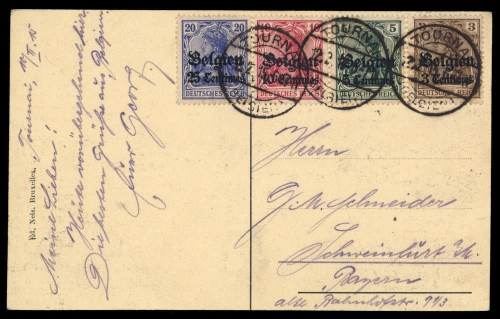 20 20
Belgien
25 Centimes
DEUTSCHES REICH
10
Belgien
10 Centimes
DEUTSCHES REICH
5
Belgien
5 Centimes
DEUTSCHES REICH
3
Belgien
3 Centimes
DEUTSCHES REICH
TOURNAI
TOURNAI
TOURNAI
Ed. Nels, Bruxelles.
Tournai,
Meine Lieben!
Heute
Die besten Grüße aus Belgien.
Euer Georg
Herrn
G. M. Schneider
Schweinfurt a/M.
Bayern
alte Bahnhofstr.